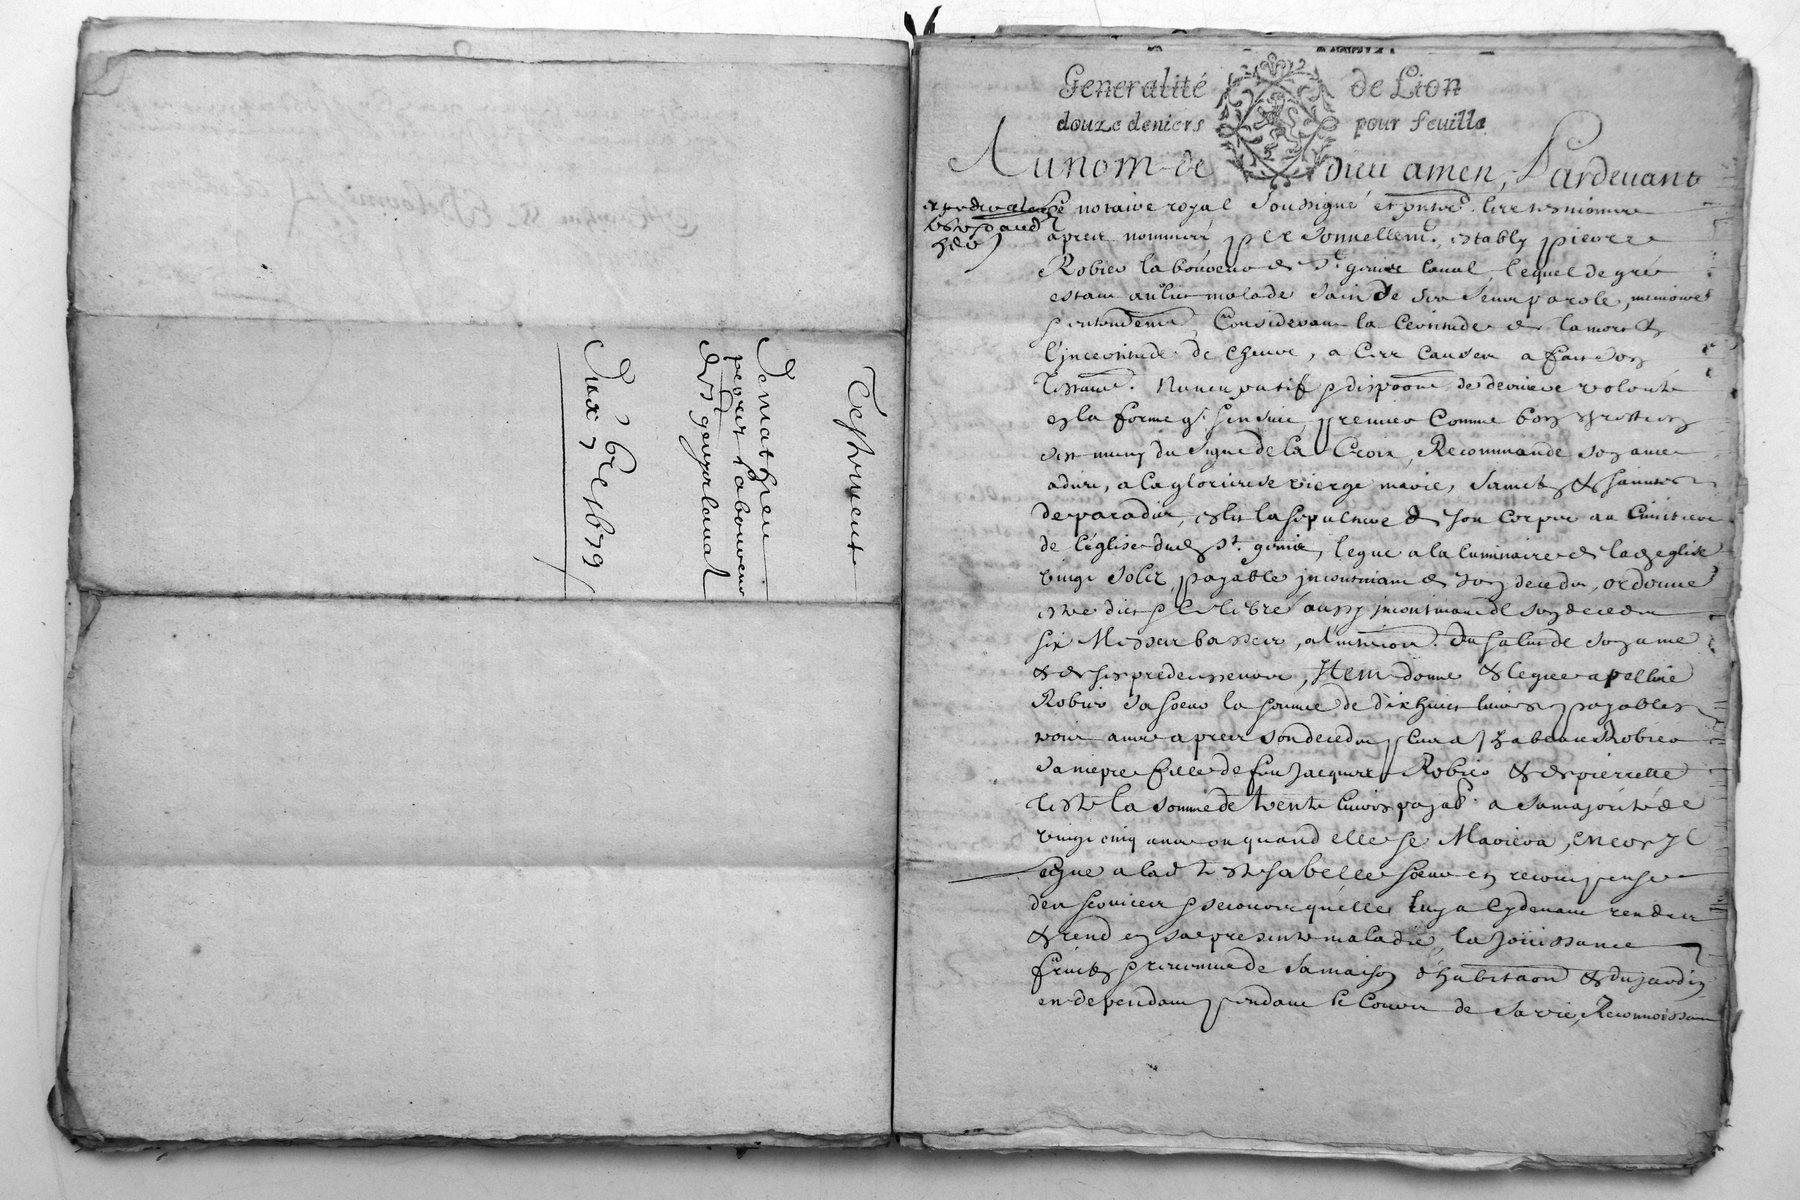 Testament
de mathieu
peyret laboureur
de St genys laval
du x 7bre 1679
Generalité de Lion
douze deniers pour feuille
Au nom de dieu amen, Pardevant
le notaire royal soussigné et
apres nommés personnellemt. estably pierre
Robier laboureur de St. genis laval, lequel de gré
estant au lict malade sain de ses sens parole, memoire
& entendemt, Considerant la Certitude de la mort &
l'jncertitude de l'heure, a Cett Causes a fait son
Testamt. Nuncupatif & dispoon de derniere volonté
en la forme q. s'en suit, premier Comme bon Chrestien
s'est muny du signe de la Croix, Recommande son ame
a dieu, a la glorieuse vierge marie, saincts & sainctes
de paradis, eslit la sepulture de son corps au Cimitiere
de l'église dud St. genis, legue a la luminaire de lad eglise
vingt solz, payable jncontinant son decedz, ordonne
estre dict & celebré aussy jncontinant son decedz
six Messes basses, a l'intention du salut de son ame
& de ses predecesseurs, Item donne & legue a pelline
Robier sa soeur la somme de dix huict livres payables
trois annés apres son decedz, plus a Jsabeau Robier
sa niepce fille de feu Jacques Robier & de pierrette
la somme de trente livres payab. a sa majorité de
vingt cinq ans ou quand elle se Mariera, encor Jl
legue a lad Jsabelle soeur en recompense
des services & secours qu'elle luy a cydevant rendus
& rend en sa presente maladie, la jouissance
fruictz & revenus de sa maison d'habitaon & du jardin
en dependant pendant le Cours de sa vie, Reconnoissant